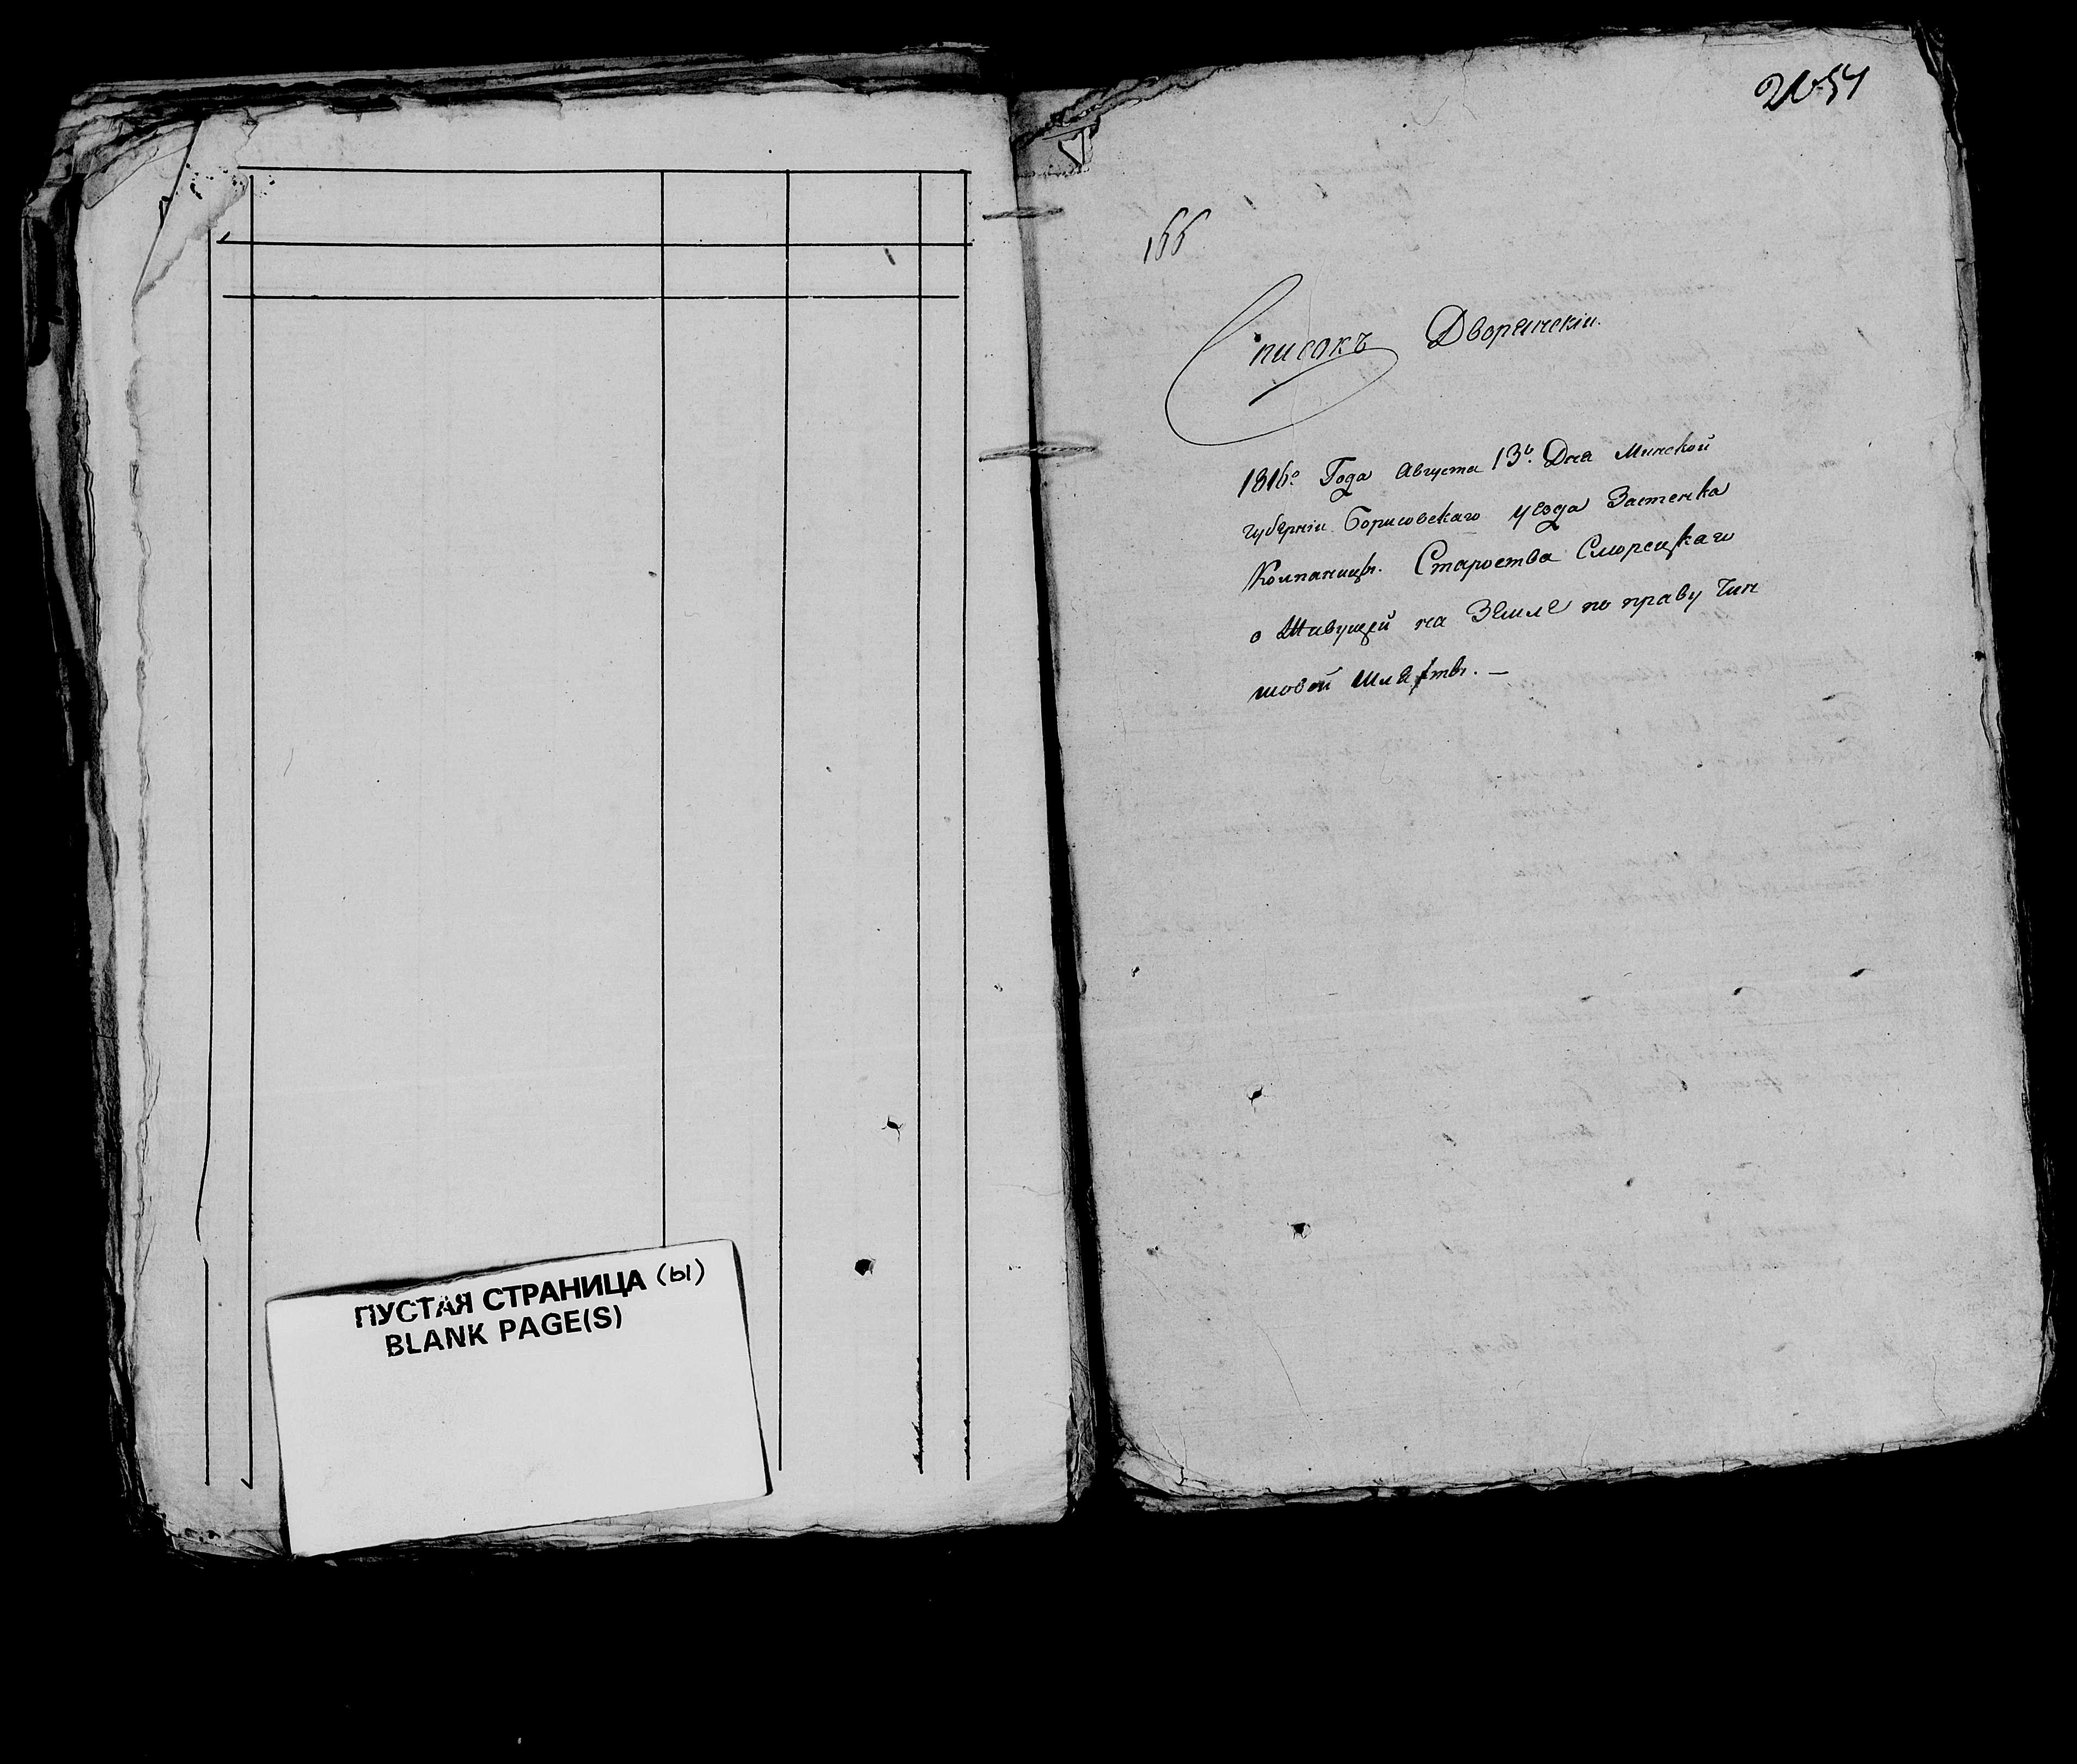 ПУСТАЯ СТРАНИЦА (ы)
BLANK PAGE(S)
166
Списокъ Дворянскiи.
1816го Года Августа 13го Дня Минской
губернiи Борисовскаго уезда Застенка
Компаницы. Староства Сморсцкаго
о Живущей на Земле по праву Чин
шовой Шляхты. —